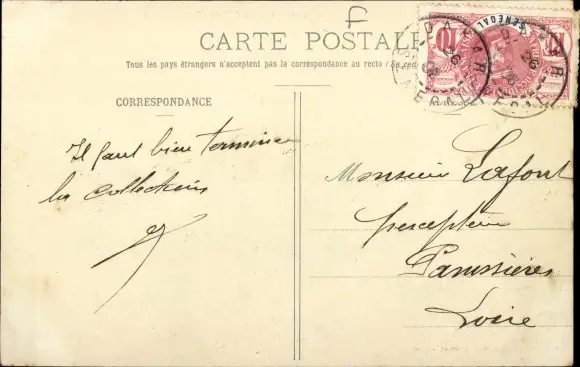 F
CARTE POSTALE
Tous les pays étrangers n'acceptent pas la correspondance au recto / Se ren
CORRESPONDANCE
10
SÉNÉGAL
DAKAR
26
Il faut bien terminer
la collection
Monsieur Lafont
percepteur
Panissières
Loire